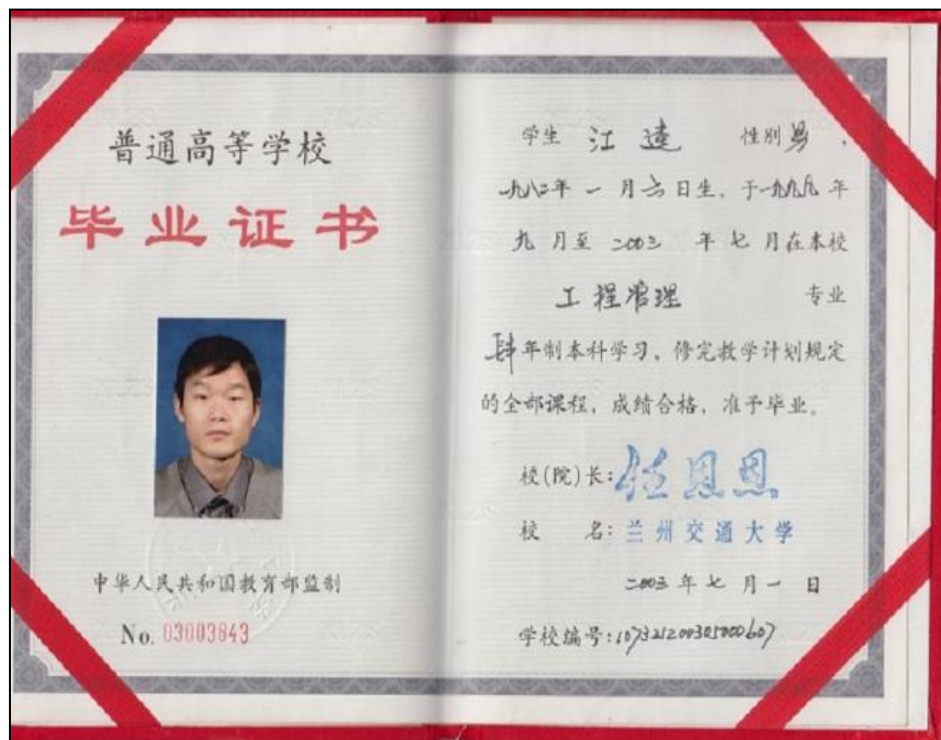 普通高等学校
毕业证书
中华人民共和国教育部监制
No. 03003843
学生 江 逵 性别 男 ,
一九八二年 一 月 六 日生, 于一九九九 年
九 月至 二00三 年 七 月在本校
工程管理 专业
肆年制本科学习, 修完教学计划规定
的全部课程, 成绩合格, 准予毕业。
校(院)长: 任恩恩
校 名: 兰州交通大学
二00三 年 七 月 一 日
学校编号: 107321200305000607